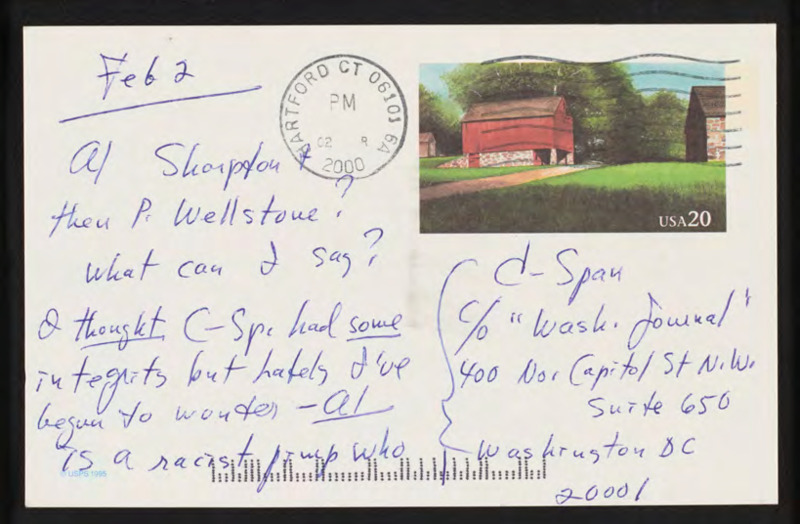 Feb 2
Al Sharpton &
then P. Wellstone?
what can I say?
I thought C-Sp. had some
integrity but lately I've
begun to wonder - Al
is a racist pimp who
HARTFORD CT 06101 6A
PM
02 8
2000
USA20
C-Span
c/o "Wash. Journal"
400 No. Capitol St N.W.
Suite 650
Washington DC
20001
© USPS 1995